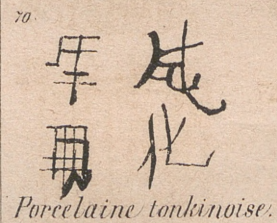 70
成化
年
Porcelaine tonkinoise.